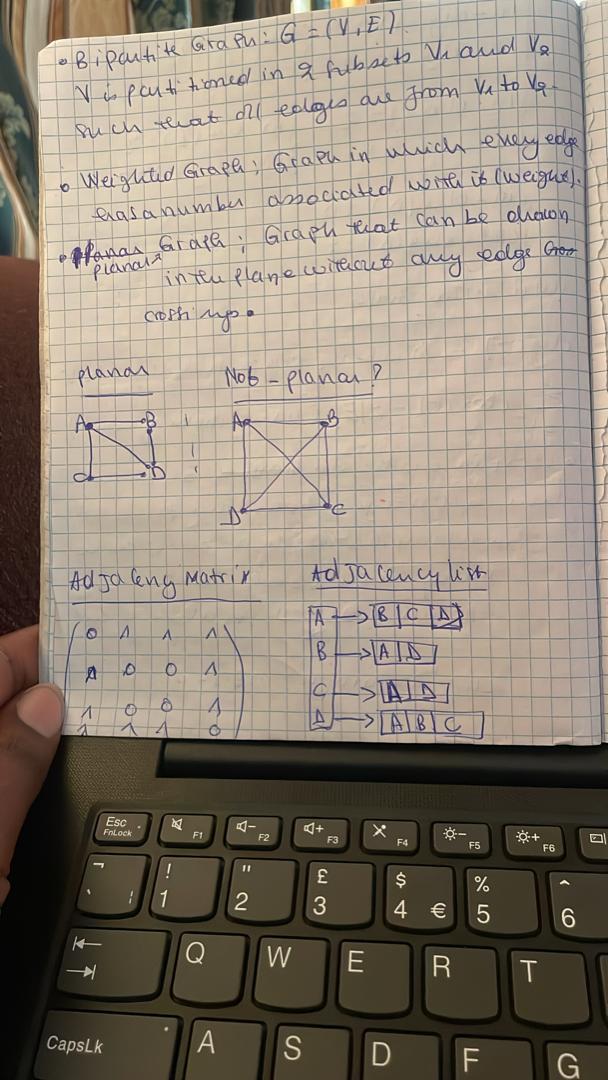 • Bipartite Graph: G = (V, E).
V is partitioned in 2 subsets V1 and V2
such that all edges are from V1 to V2.
• Weighted Graph: Graph in which every edge
has a number associated with it (weight).
• Planar Graph: Graph that can be drawn
planar
in the plane without any edge
crossing.
planar Not-planar?
A B A B
C D D C
Adjaceny Matrix Adjacency list
0 1 1 1 A → B | C | D
1 0 0 1 B → A | D
1 0 0 1 C → A | D
1 1 1 0 D → A | B | C
Esc F1 F2 F3 F4 F5 F6
FnLock
¬ ! " £ $ % ^
` ¦ 1 2 3 4 € 5 6
Q W E R T
CapsLk A S D F G